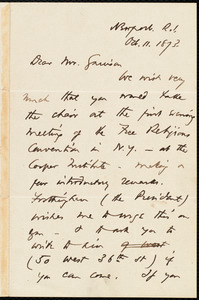 Newport. R.I.
Oct. 11. 1873.
Dear Mr. Garrison
We wish very
much that you would take
the chair at the first evening
meeting of the Free Religious
Convention in N.Y. – at the
Cooper Institute – making a
few introductory remarks.
Frothingham (the President)
wishes me to urge this on
you – & to ask you to
write to him
(50 West 36th st) if
you can come. If you